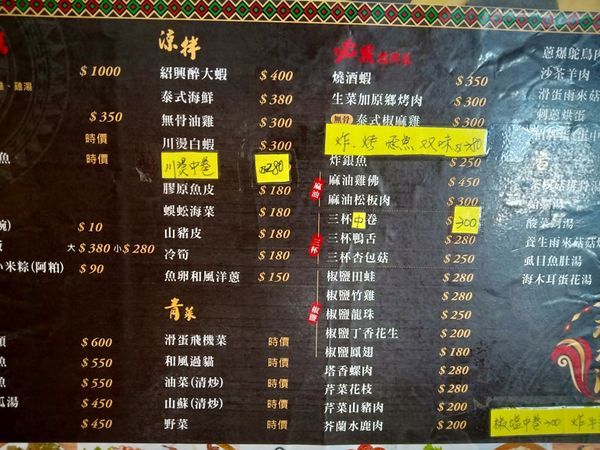 $ 1000
雞、雞湯
$ 350
時價
魚 時價
$ 10
大 $ 380 小 $ 280
小米粽(阿粨) $ 90
$ 600
魚 $ 550
魚 $ 550
瓜湯 $ 450
$ 450
涼拌
紹興醉大蝦 $ 400
泰式海鮮 $ 380
無骨油雞 $ 300
川燙白蝦 $ 300
川燙中卷 280
膠原魚皮 $ 180
蜈蚣海菜 $ 180
山豬皮 $ 180
冷筍 $ 180
魚卵和風洋蔥 $ 150
青菜
滑蛋飛機菜 時價
和風過貓 時價
油菜(清炒) 時價
山蘇(清炒) 時價
野菜 時價
燒酒蝦 $ 350
生菜加原鄉烤肉 $ 300
無骨 泰式椒麻雞
炸、烤 魚 双味
炸銀魚 $ 250
麻油
麻油雞佛 $ 450
麻油松板肉 $ 300
三杯
三杯中卷 $ 300
三杯鴨舌 $ 280
三杯杏包菇 $ 250
椒鹽
椒鹽田蛙 $ 280
椒鹽竹雞 $ 280
椒鹽龍珠 $ 250
椒鹽丁香花生 $ 200
椒鹽鳳翅 $ 180
塔香螺肉 $ 280
芹菜花枝 $ 280
芹菜山豬肉 $ 200
芥蘭水鹿肉 $ 200
蔥爆鴕鳥肉
沙茶羊肉
滑蛋雨來菇
刺蔥烘蛋
酸菜
養生雨來菇菇
虱目魚肚湯
海木耳蛋花湯
椒塩中卷300 炸牛